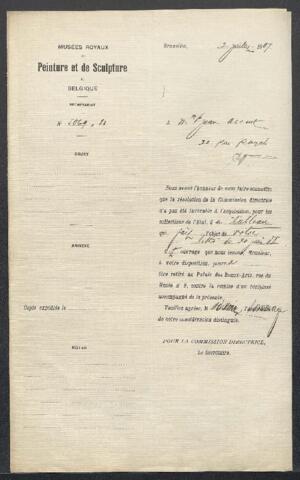 MUSÉES ROYAUX
DE
Peinture et de Sculpture
DE
BELGIQUE
SECRÉTARIAT
N°
OBJET
ANNEXE
Copie expédiée le
NOTAS
Bruxelles, 2 juillet 1887.
à M
Nous avons l'honneur de vous faire connaître
que la résolution de la Commission directrice
n'a pas été favorable à l'acquisition, pour les
collections de l'État, d tableau
qui fait l'objet de votre
lettre du 20 juin
L ouvrage que nous tenons, Monsieur,
à votre disposition, pourra
être retiré au Palais des Beaux-Arts, rue du
Musée n° 9, contre la remise d'un récépissé
accompagné de la présente.
Veuillez agréer, M l'assurance
de notre considération distinguée.
POUR LA COMMISSION DIRECTRICE,
Le Secrétaire,